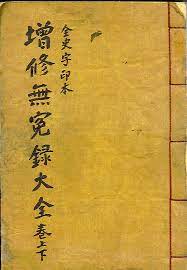 全史字印本
增修無冤錄大全 卷上下